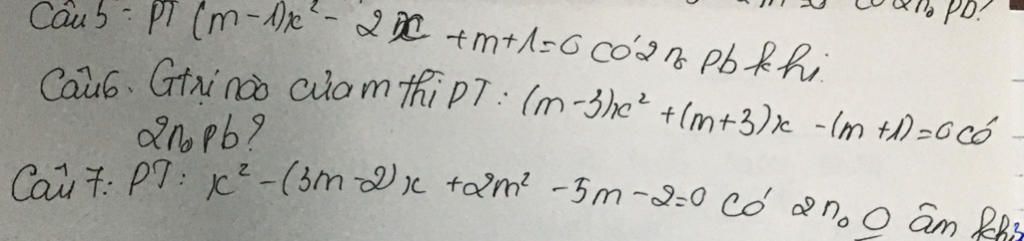 có 2n₀ pb?
Câu 5: PT (m-1)x² - 2x + m+1=0 có 2n₀ pb khi.
Câu 6. Gtrị nào của m thì PT: (m-3)x² + (m+3)x - (m+1)=0 có
2n₀ pb?
Câu 7: PT: x² - (3m-2)x + 2m² - 5m - 2=0 có 2n₀ 0 âm khi